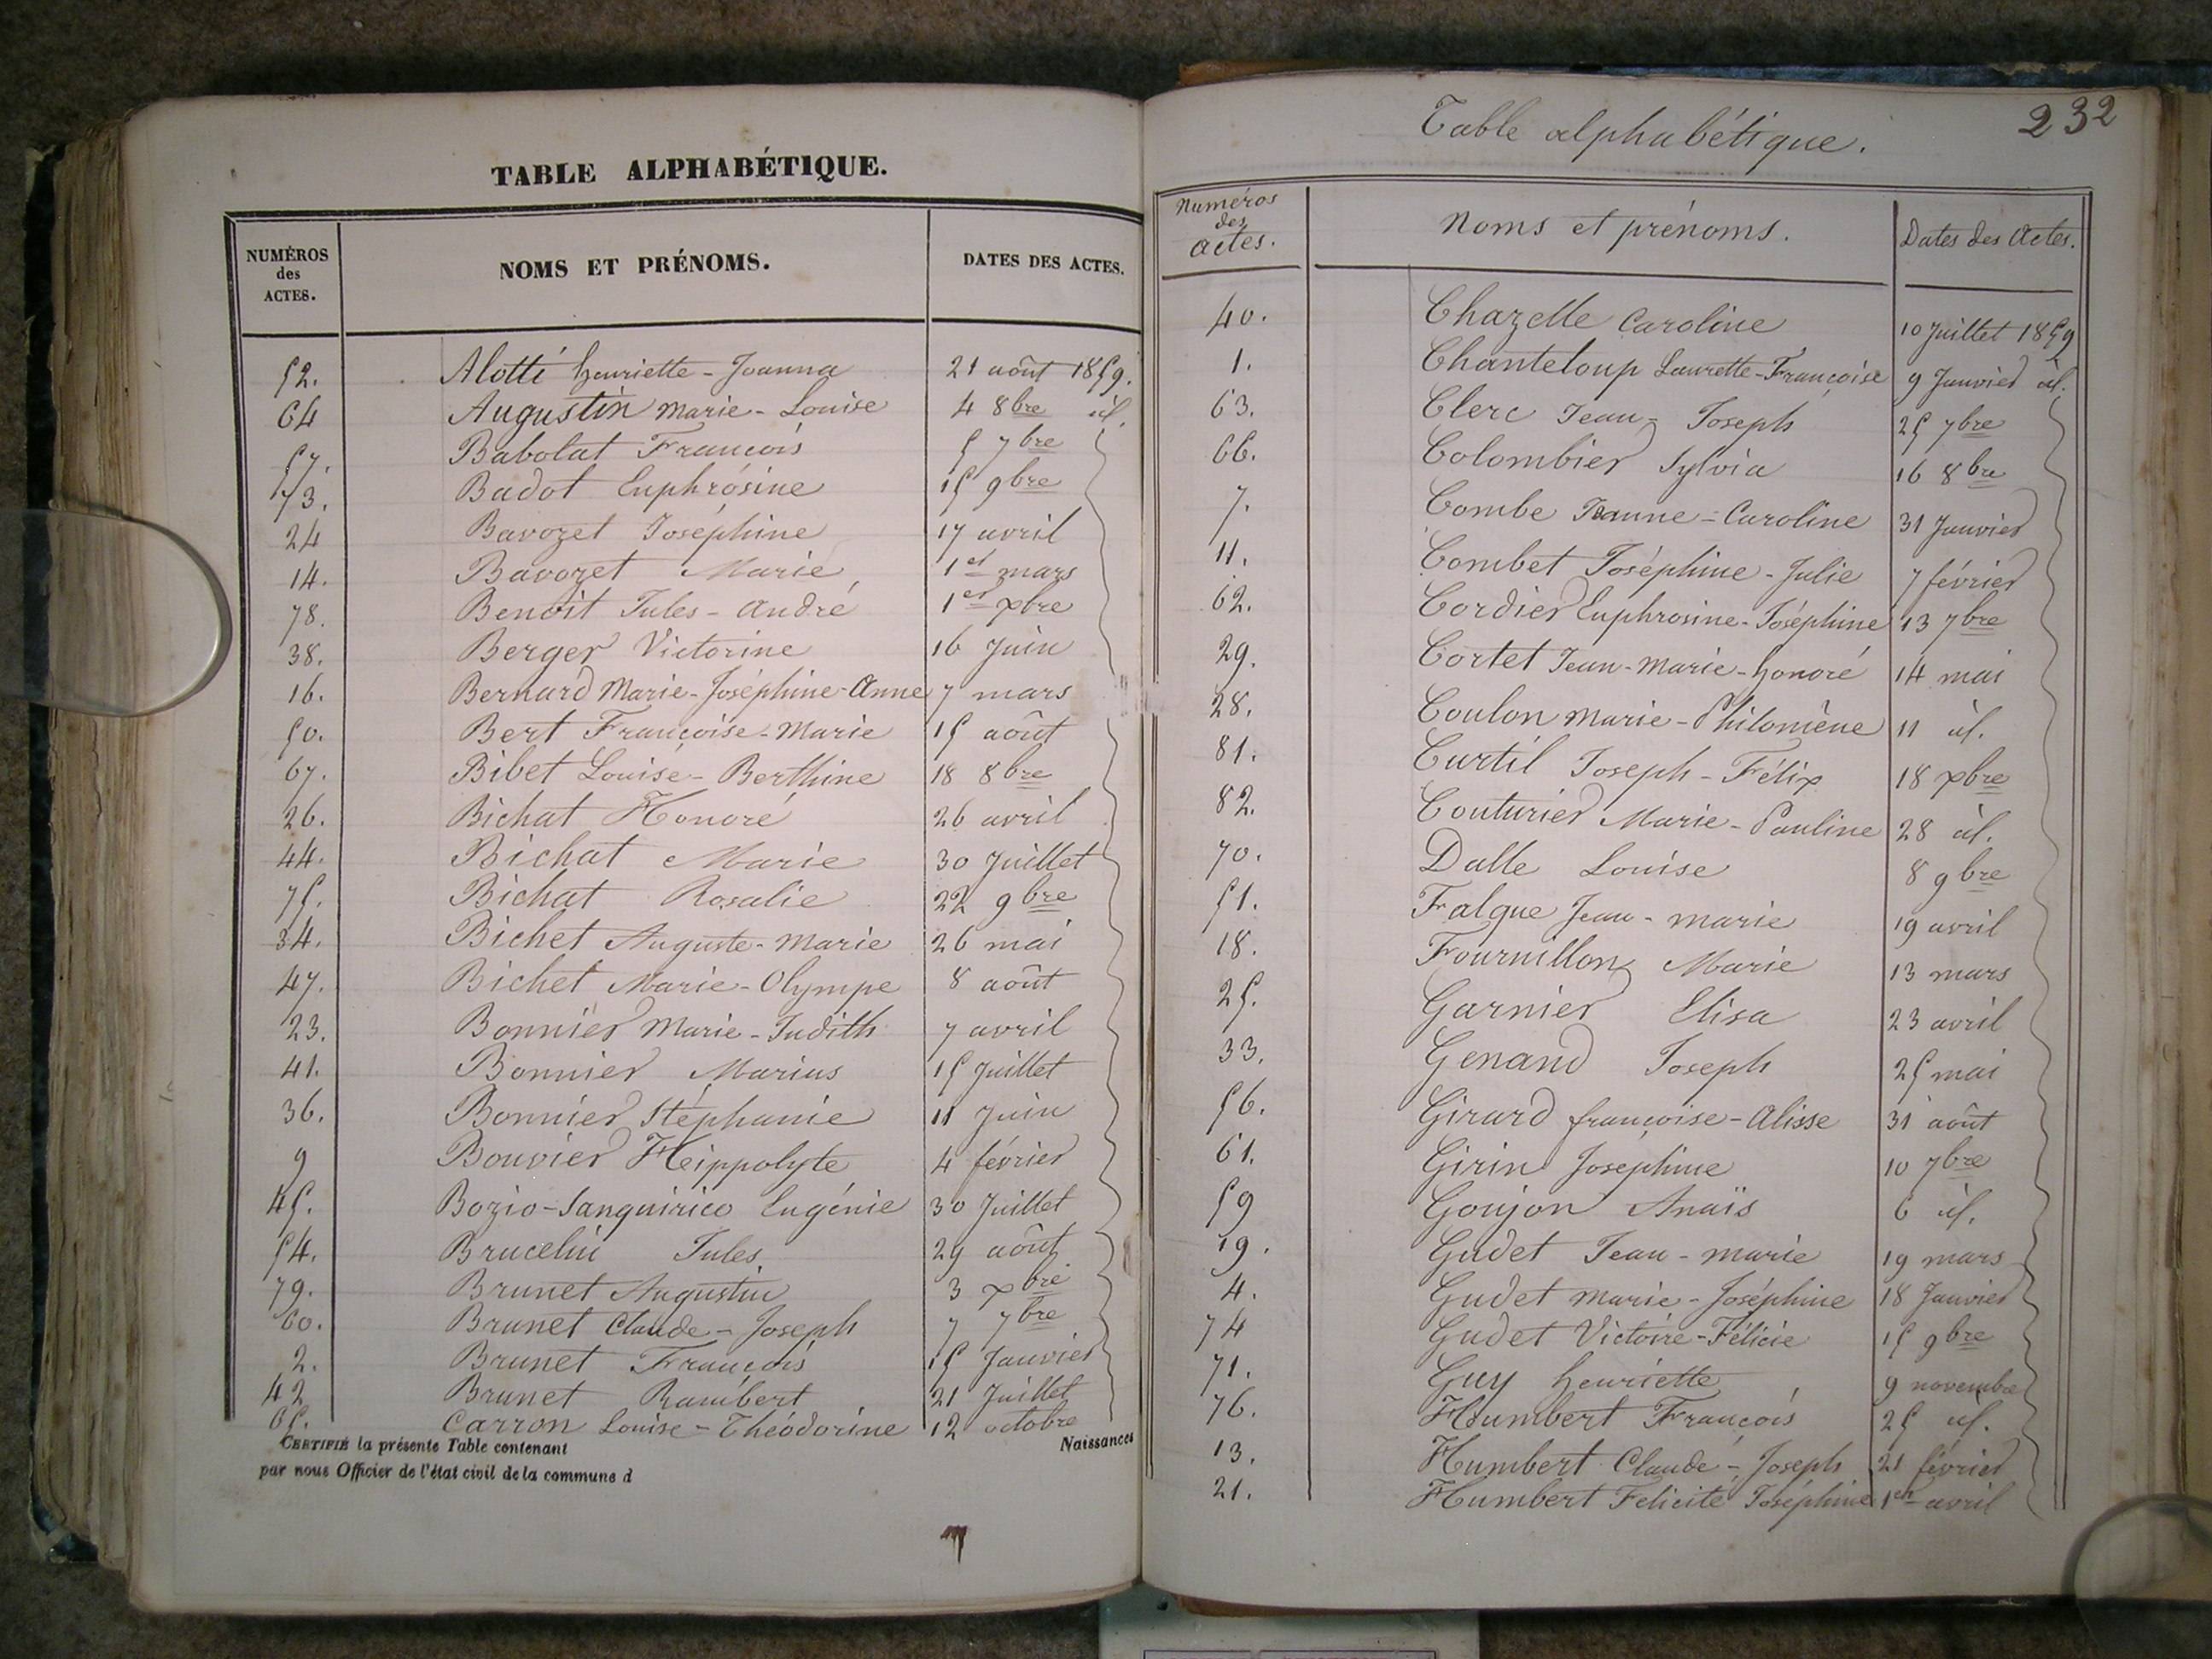 TABLE ALPHABÉTIQUE.
NUMÉROS des ACTES. NOMS ET PRÉNOMS. DATES DES ACTES.
52. Alotti henriette-Joanna 21 août 1859.
64 Augustin marie-Louise 4 8bre id.
57. Babolat François 5 7bre
73. Badot Euphrósine 15 9bre
24 Bavozet Joséphine 17 avril
14. Bavozet Marie 1er mars
78. Benoit Jules-andré 1er xbre
38. Berger Victorine 16 Juin
16. Bernard Marie-Joséphine-Anne 7 mars
50. Bert Françoise-Marie 15 août
67. Bibet Louise-Berthine 18 8bre
26. Bichat Honoré 26 avril
44. Bichat Marie 30 Juillet
75. Bichat Rosalie 22 9bre
34. Bichet Auguste-Marie 26 mai
47. Bichet Marie-Olympe 8 août
23. Bonnier Marie-Judith 7 avril
41. Bonnier Marius 15 Juillet
36. Bonnier Stéphanie 11 Juin
9 Bouvier Heippolyte 4 février
45. Bozio-Sanquirico Eugénie 30 Juillet
54. Brucelin Jules 29 août
79. Brunet Augustin 3 xbre
60. Brunet Claude-Joseph 7 7bre
2. Brunet François 15 Janvier
42 Brunet Rambert 21 Juillet
65. Carron Louise-Théodorine 12 octobre
CERTIFIÉ la présente Table contenant Naissances
par nous Officier de l'état civil de la commune d
232
Table alphabétique.
Numéros des actes. Noms et prénoms. Dates des Actes.
40. Chazelle Caroline 10 Juillet 1859
1. Chanteloup Laurette-Françoise 9 Janvier id.
63. Clerc Jean-Joseph 25 7bre
66. Colombier Sylvia 16 8bre
7. Combe Jeanne-Caroline 31 Janvier
11. Combet Joséphine-Julie 7 février
62. Cordier Euphrosine-Joséphine 13 7bre
29. Cortet Jean-Marie-honoré 14 mai
28. Coulon Marie-Philomène 11 id.
81. Curtil Joseph-Félix 18 xbre
82. Couturier Marie-Pauline 28 id.
70. Dalle Louise 8 9bre
51. Falque Jean-marie 19 avril
18. Fournillon Marie 13 mars
25. Garnier Elisa 23 avril
33. Genand Joseph 25 mai
56. Girard françoise-Alisse 31 août
61. Girin Joséphine 10 7bre
59 Goujon Anaïs 6 id.
19. Gudet Jean-marie 19 mars
4. Gudet marie-Joséphine 18 Janvier
74 Gudet Victoire-Félicie 15 9bre
71. Guy henriette 9 novembre
76. Humbert François 25 id.
13. Humbert Claude-Joseph 21 février
21. Humbert Felicité Joséphine 1er avril